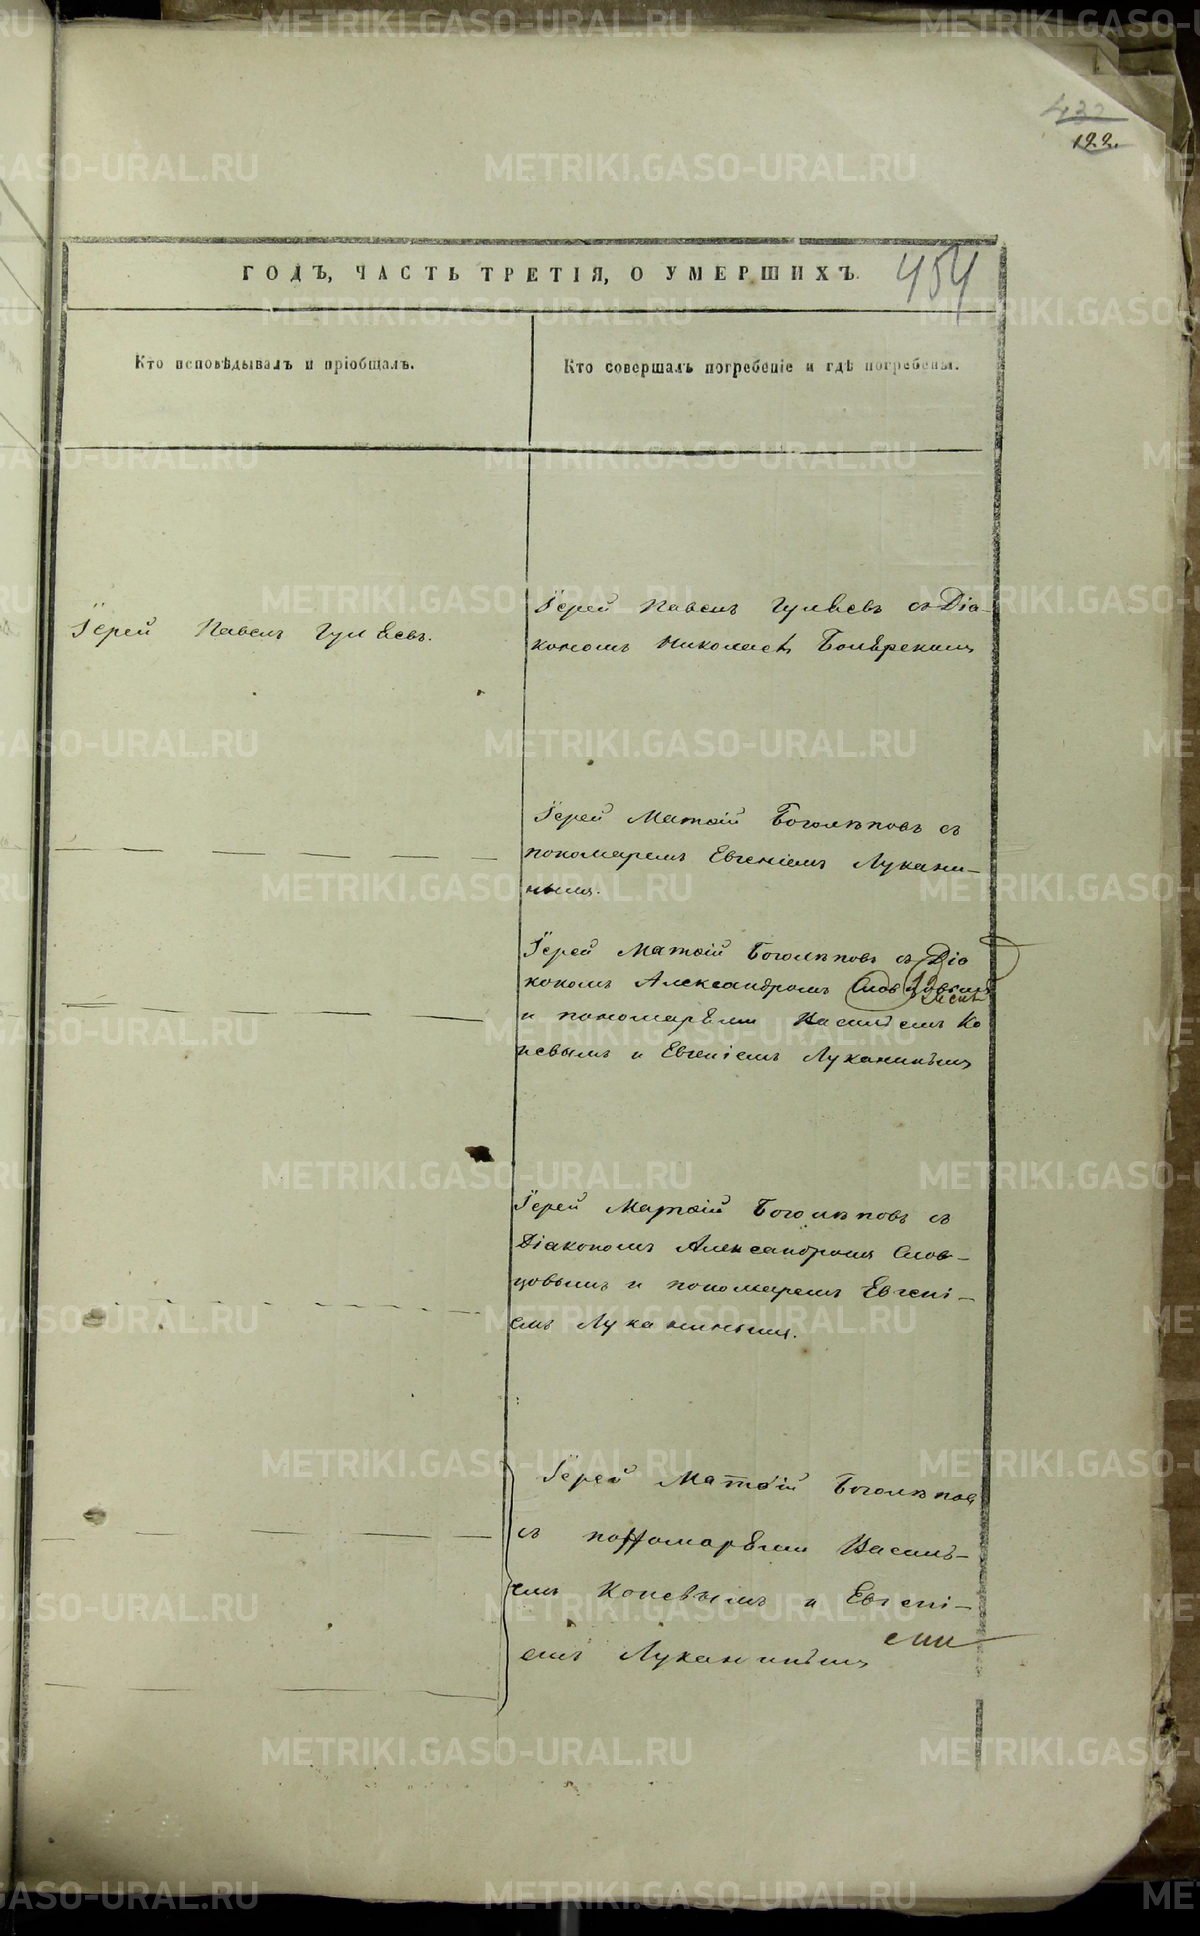 122.
ГОДЪ, ЧАСТЬ ТРЕТІЯ, О УМЕРШИХЪ.
454
Кто исповѣдывалъ и пріобщалъ.
Кто совершалъ погребеніе и гдѣ погребены.
Іерей Павелъ Гуляевъ.
Іерей Павелъ Гуляевъ съ Діа-
кономъ Николаемъ
Іерей Матѳій Боголѣповъ съ
пономаремъ Евгеніемъ Лукани-
нымъ.
Іерей Матѳій Боголѣповъ съ Діа
кономъ Александромъ Словцовымъ
и пономарями Василіемъ Ко
певымъ и Евгеніемъ Луканинымъ
Іерей Матѳій Боголѣповъ съ
Діакономъ Александромъ Слов-
цовымъ и пономаремъ Евгені-
емъ Луканинымъ.
Іерей Матѳій Боголѣповъ
съ пономарями Василь-
емъ Копевымъ и Евгені-
емъ Луканинымъ
METRIKI.GASO-URAL.RU